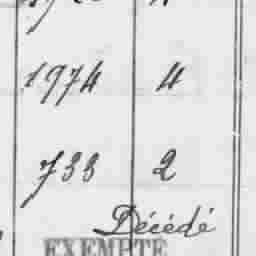 1974 4
733 2
Décédé
EXEMPTE